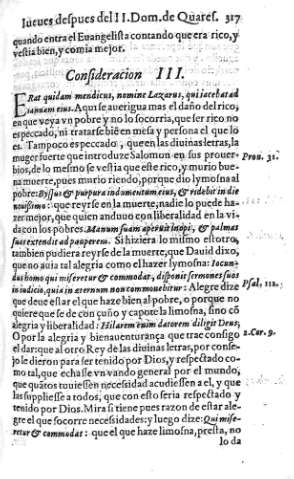 Iueues despues del II. Dom. de Quares. 317
quando entra el Euangelista contando que era rico, y
vestia bien, y comia mejor.
Consideracion III.
ERat quidam mendicus, nomine Lazarus, qui iacebat ad
ianuam eius. Aqui se auerigua mas el daño del rico,
en que veya vn pobre y no lo socorria, que ser rico no
es peccado, ni tratarse biē en mesa y persona el que lo
es. Tampoco es peccado, que en las diuinas letras, la
muger fuerte que introduze Salomon en sus prouer-
bios, de lo mesmo se vestia que este rico, y murio bue-
na muerte, pues murio riendo, porque dio lymosna al
pobre: Byssus & purpura indumentum eius, & ridebit in die
nouissimo: que reyrse en la muerte, nadie lo puede ha-
zer mejor, que quien anduuo con liberalidad en la vi-
da con los pobres. Manum suam aperuit inopi, & palmas
suas extendit ad pauperem. Si hiziera lo mismo estotro,
tambien pudiera reyrse de la muerte, que Dauid dixo,
que no auia tal alegria como el hazer lymosna: Iocun-
dus homo qui miseretur & commodat, disponit sermones suos
in iudicio, quia in æternum non commouebitur: Alegre dize
que deue estar el que haze bien al pobre, o porque no
quiere que se de con çuño y capote la limosna, sino cō
alegria y liberalidad: Hilarem enim datorem diligit Deus;
O por la alegria y bienauenturança que trae consigo
el dar: que al otro Rey de las diuinas letras, por conse-
jo le dieron para ser tenido por Dios, y respectado co-
mo tal, que echasse vn vando general por el mundo,
que quātos tuuiessen necessidad acudiessen a el, y que
las supliesse a todos, que con esto seria respectado y
tenido por Dios. Mira si tiene pues razon de estar ale-
gre el que socorre necessidades: y luego dize: Qui mise-
retur & commodat: que el que haze limosna, presta, no
lo da
Prou. 31.
Psal. 111.
2. Cor. 9.